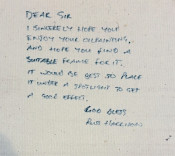 DEAR SIR
I SINCERELY HOPE YOU
ENJOY YOUR OILPAINTING,
AND HOPE YOU FIND A
SUITABLE FRAME FOR IT.
IT WOULD BE BEST TO PLACE
IT UNDER A SPOTLIGHT TO GET
A GOOD EFFECT.
GOD BLESS